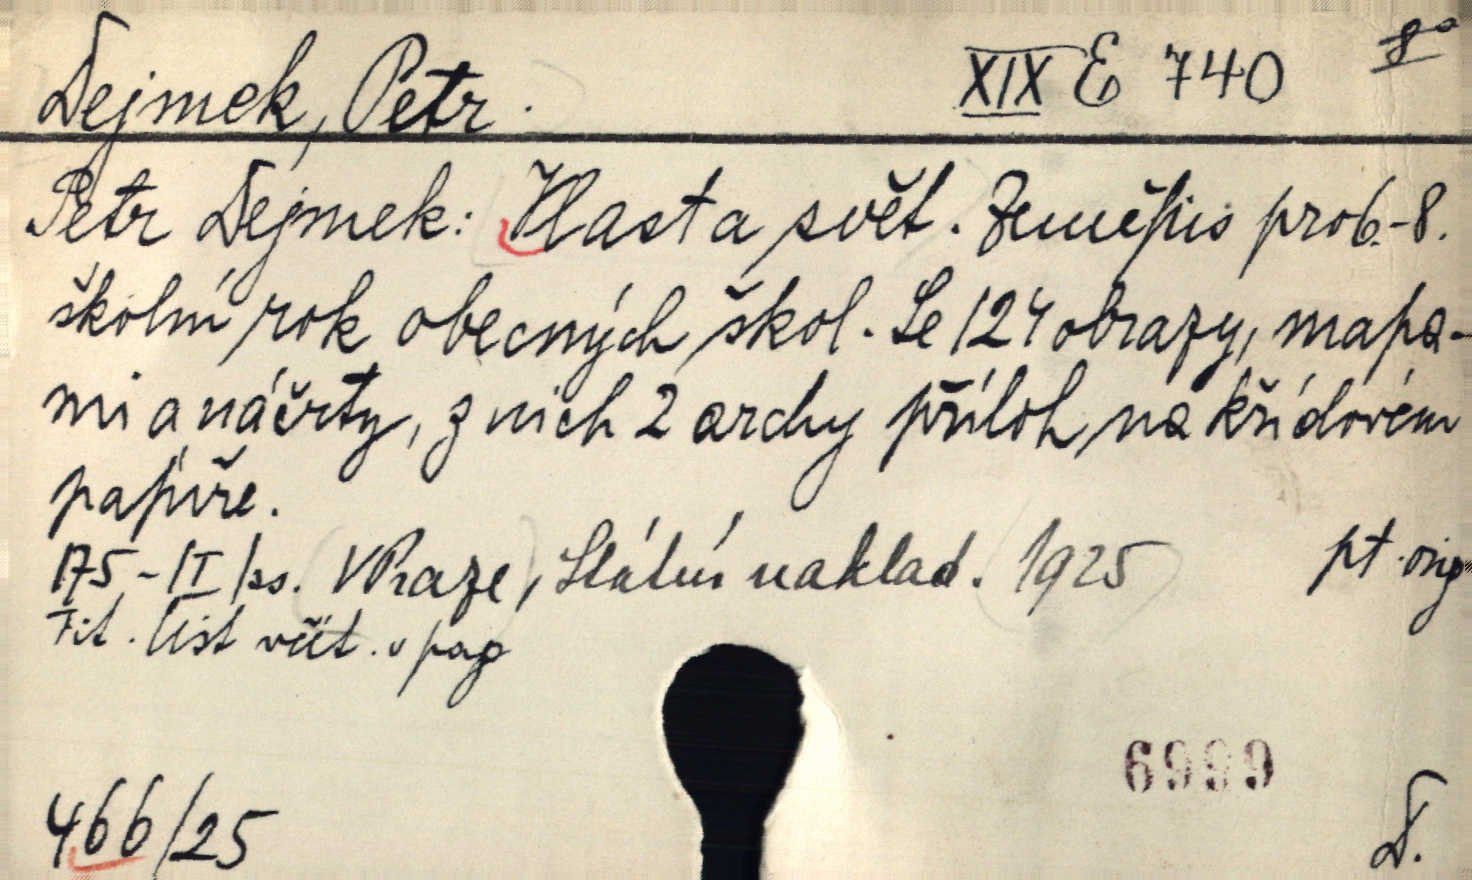 Dejmek, Petr. XIX E 740 8°
Petr Dejmek: Vlast a svět. Zeměpis pro 6.-8.
školní rok obecných škol. Se 124 obrazy, mapa-
mi a náčrty, z nich 2 archy příloh na křídovém
papíře.
175-II ss. V Praze, Státní naklad. 1925 pt. orig
Tit. list včít. v pag
6999
466/25 D.